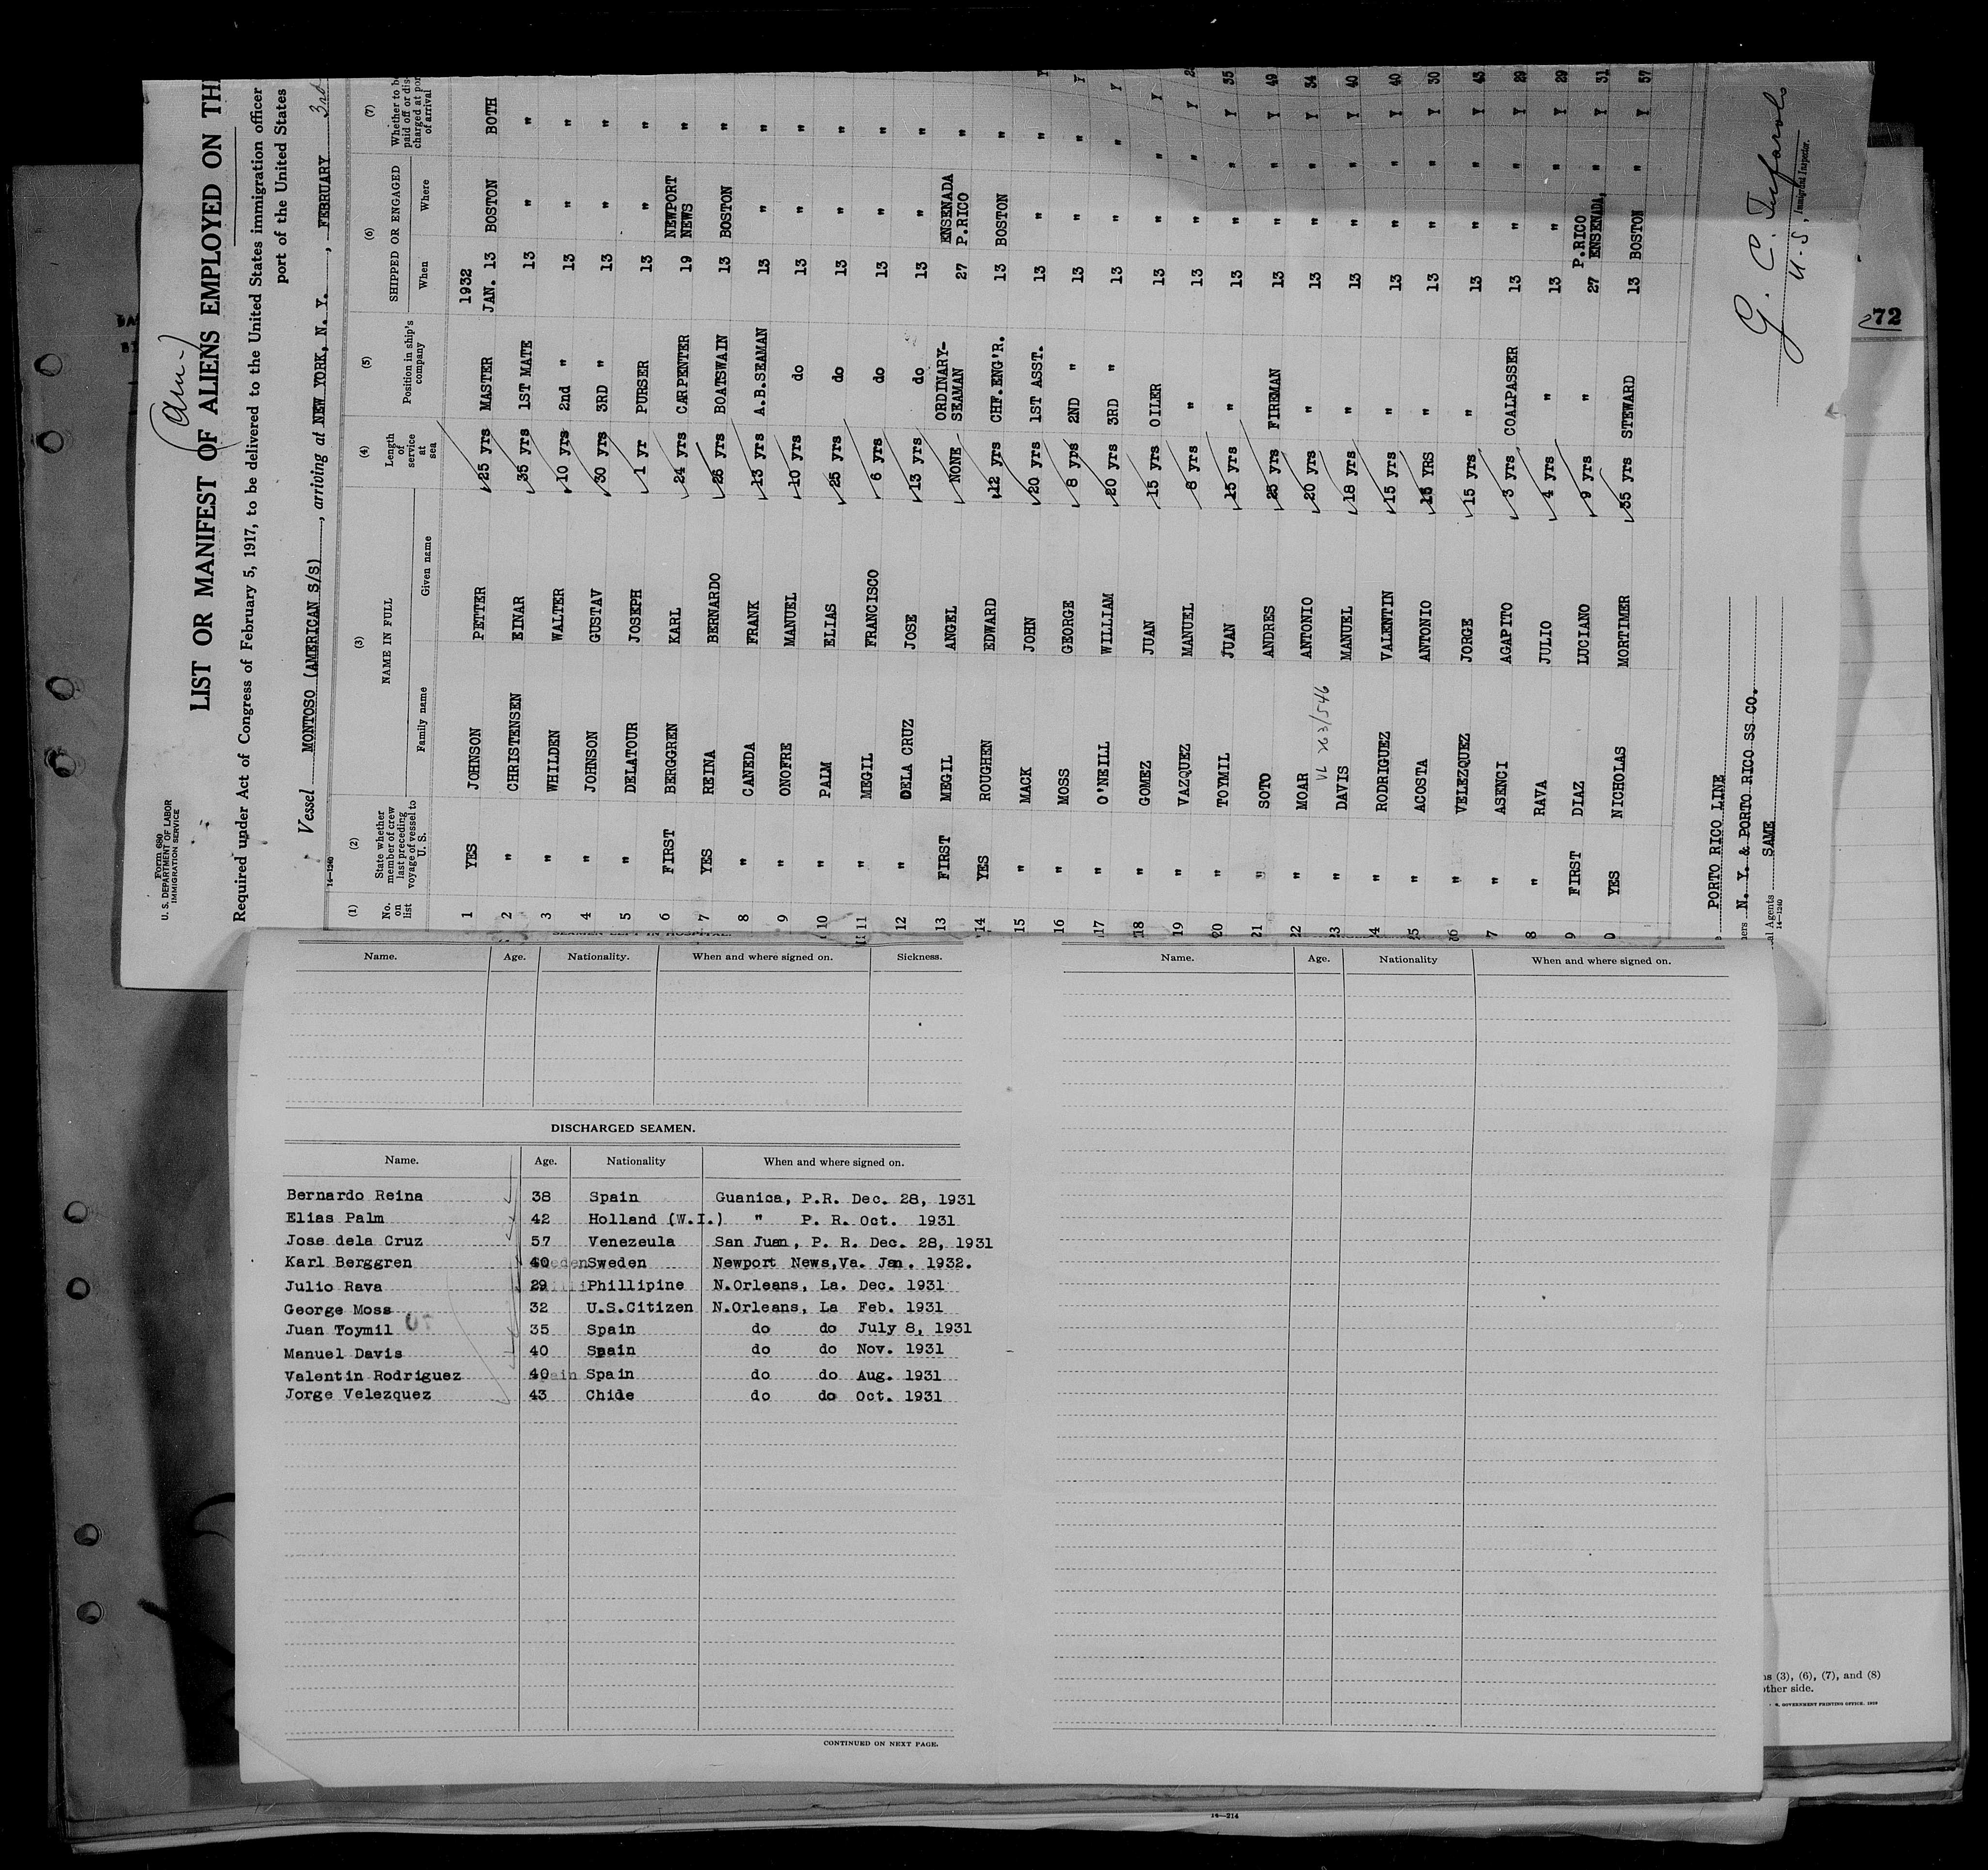 Form 680
U. S. DEPARTMENT OF LABOR
IMMIGRATION SERVICE
(Am)
LIST OR MANIFEST OF ALIENS EMPLOYED ON TH
Required under Act of Congress of February 5, 1917, to be delivered to the United States immigration officer
port of the United States
Vessel MONTOSO (AMERICAN S/S), arriving at NEW YORK, N. Y., FEBRUARY 3rd
14—1240
(1) (2) (3) (4) (5) (6) (7)
No. on list
State whether member of crew last preceding voyage of vessel to U. S.
NAME IN FULL
Family name Given name
Length of service at sea
Position in ship's company
SHIPPED OR ENGAGED
When Where
Whether to be paid off or discharged at port of arrival
1932
1 YES JOHNSON PETTER 25 yrs MASTER JAN. 13 BOSTON BOTH
2 " CHRISTENSEN EINAR 35 yrs 1ST MATE 13 " "
3 " WHILDEN WALTER 10 yrs 2nd " 13 " "
4 " JOHNSON GUSTAV 30 yrs 3RD " 13 " "
5 " DELATOUR JOSEPH 1 yr PURSER 13 " "
6 FIRST BERGGREN KARL 24 yrs CARPENTER 19 NEWPORT NEWS "
7 YES REINA BERNARDO 26 yrs BOATSWAIN 13 BOSTON "
8 " CANEDA FRANK 13 yrs A.B.SEAMAN 13 " "
9 " ONOFRE MANUEL 10 yrs do 13 " "
10 " PALM ELIAS 25 yrs do 13 " "
11 " MEGIL FRANCISCO 6 yrs do 13 " "
12 " DELA CRUZ JOSE 13 yrs do 13 " "
13 FIRST MEGIL ANGEL NONE ORDINARY-SEAMAN 27 ENSENADA P.RICO "
14 YES ROUGHEN EDWARD 12 yrs CHF.ENG'R. 13 BOSTON "
15 " MACK JOHN 20 yrs 1ST ASST. 13 " " Y
16 " MOSS GEORGE 8 yrs 2ND " 13 " " Y
17 " O'NEILL WILLIAM 20 yrs 3RD " 13 " " Y
18 " GOMEZ JUAN 15 yrs OILER 13 " " Y
19 " VAZQUEZ MANUEL 8 yrs " 13 " " Y
20 " TOYMIL JUAN 15 yrs " 13 " " Y 35
21 " SOTO ANDRES 25 yrs FIREMAN 13 " " Y 49
22 " MOAR ANTONIO 20 yrs " 13 " " Y 34
VL 263/546
23 " DAVIS MANUEL 18 yrs " 13 " " Y 40
4 " RODRIGUEZ VALENTIN 15 yrs " 13 " " Y 40
5 " ACOSTA ANTONIO 16 YRS " 13 " " Y 30
6 " VELEZQUEZ JORGE 15 yrs " 13 " " Y 43
7 " ASENCI AGAPITO 3 yrs COALPASSER 13 " " Y 29
8 " RAVA JULIO 4 yrs " 13 " " Y 29
9 FIRST DIAZ LUCIANO 9 yrs " 27 P.RICO ENSENADA, " Y 31
0 YES NICHOLAS MORTIMER 35 yrs STEWARD 13 BOSTON " Y 57
PORTO RICO LINE
ners N. Y. & PORTO RICO SS CO.
al Agents SAME
14—1240
U.S., Immigrant Inspector.
72
SEAMEN LEFT IN HOSPITAL
Name. Age. Nationality. When and where signed on. Sickness.
Name. Age. Nationality When and where signed on.
DISCHARGED SEAMEN.
Name. Age. Nationality When and where signed on.
Bernardo Reina 38 Spain Guanica, P.R. Dec. 28, 1931
Elias Palm 42 Holland (W.I.) " P. R. Oct. 1931
Jose dela Cruz 57 Venezeula San Juan, P. R. Dec. 28, 1931
Karl Berggren 40 Sweden Newport News,Va. Jan. 1932.
Julio Rava 29 Phillipine N.Orleans, La. Dec. 1931
George Moss 32 U.S.Citizen N.Orleans, La Feb. 1931
Juan Toymil 35 Spain do do July 8, 1931
Manuel Davis 40 Spain do do Nov. 1931
Valentin Rodriguez 40 Spain do do Aug. 1931
Jorge Velezquez 43 Chile do do Oct. 1931
CONTINUED ON NEXT PAGE.
ns (3), (6), (7), and (8)
other side.
GOVERNMENT PRINTING OFFICE. 1929
14—214